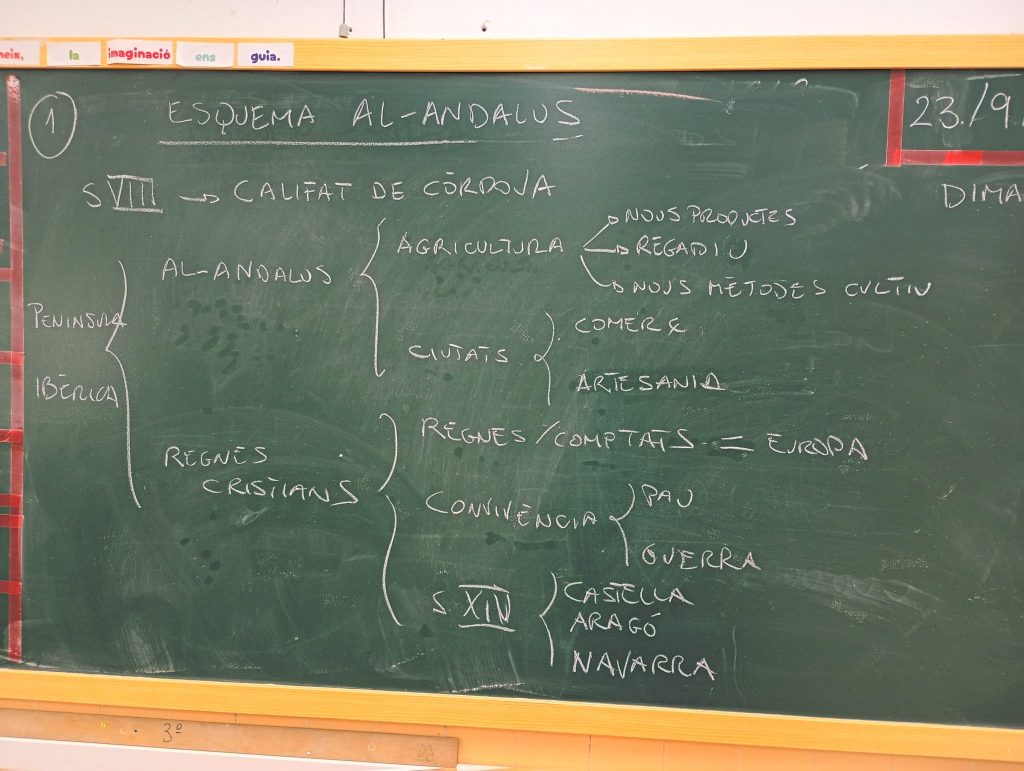 la imaginació ens guia.
1 ESQUEMA AL-ANDALUS
23./9.
DIMA
S VIII → CALIFAT DE CÒRDOVA
PENINSULA IBÈRICA
AL-ANDALUS
AGRICULTURA
NOUS PRODUCTES
REGADIU
NOUS MÈTODES CULTIU
CIUTATS
COMERÇ
ARTESANIA
REGNES
CRISTIANS
REGNES/COMPTATS = EUROPA
CONVIVÈNCIA
PAU
GUERRA
S XIV
CASTELLA
ARAGÓ
NAVARRA
3º